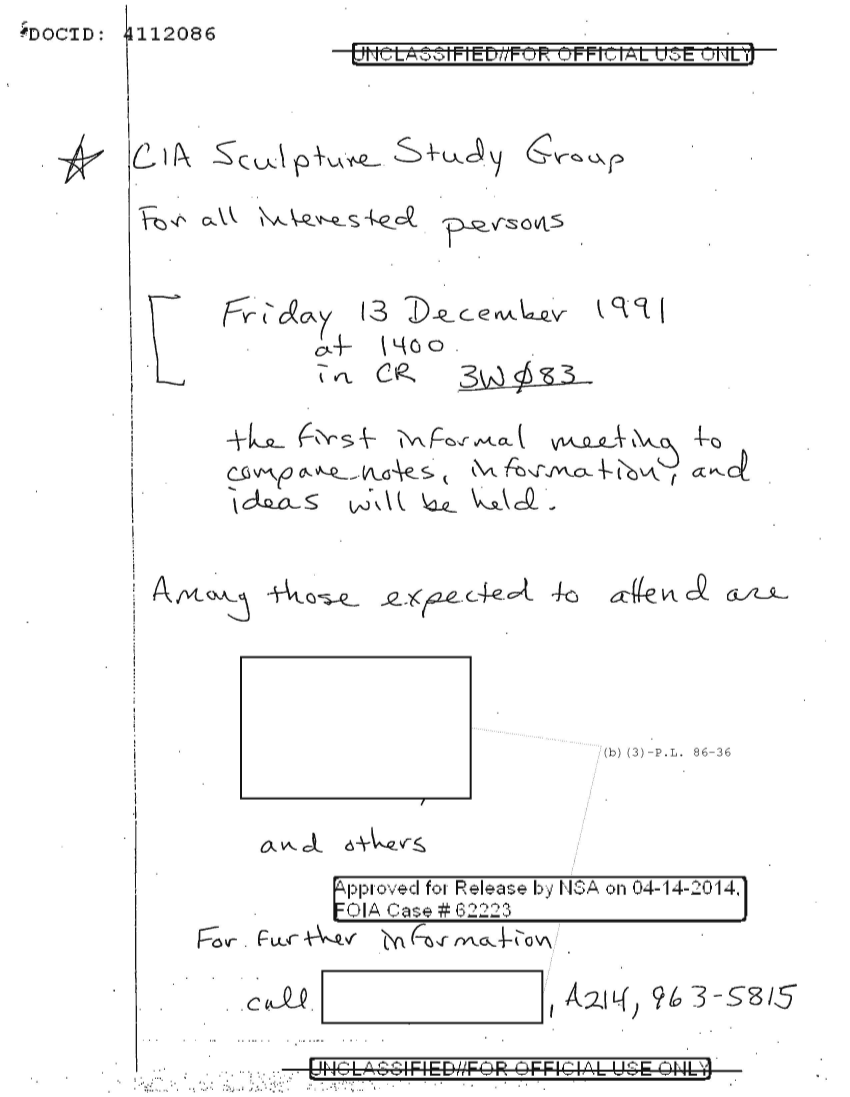 DOCID: 4112086
UNCLASSIFIED//FOR OFFICIAL USE ONLY
CIA Sculpture Study Group
For all interested persons
Friday 13 December 1991
at 1400
in CR 3WØ83
the first informal meeting to
compare notes, information, and
ideas will be held.
Among those expected to attend are
(b)(3)-P.L. 86-36
and others
Approved for Release by NSA on 04-14-2014,
FOIA Case # 62223
For further information
call , A214, 963-5815
UNCLASSIFIED//FOR OFFICIAL USE ONLY